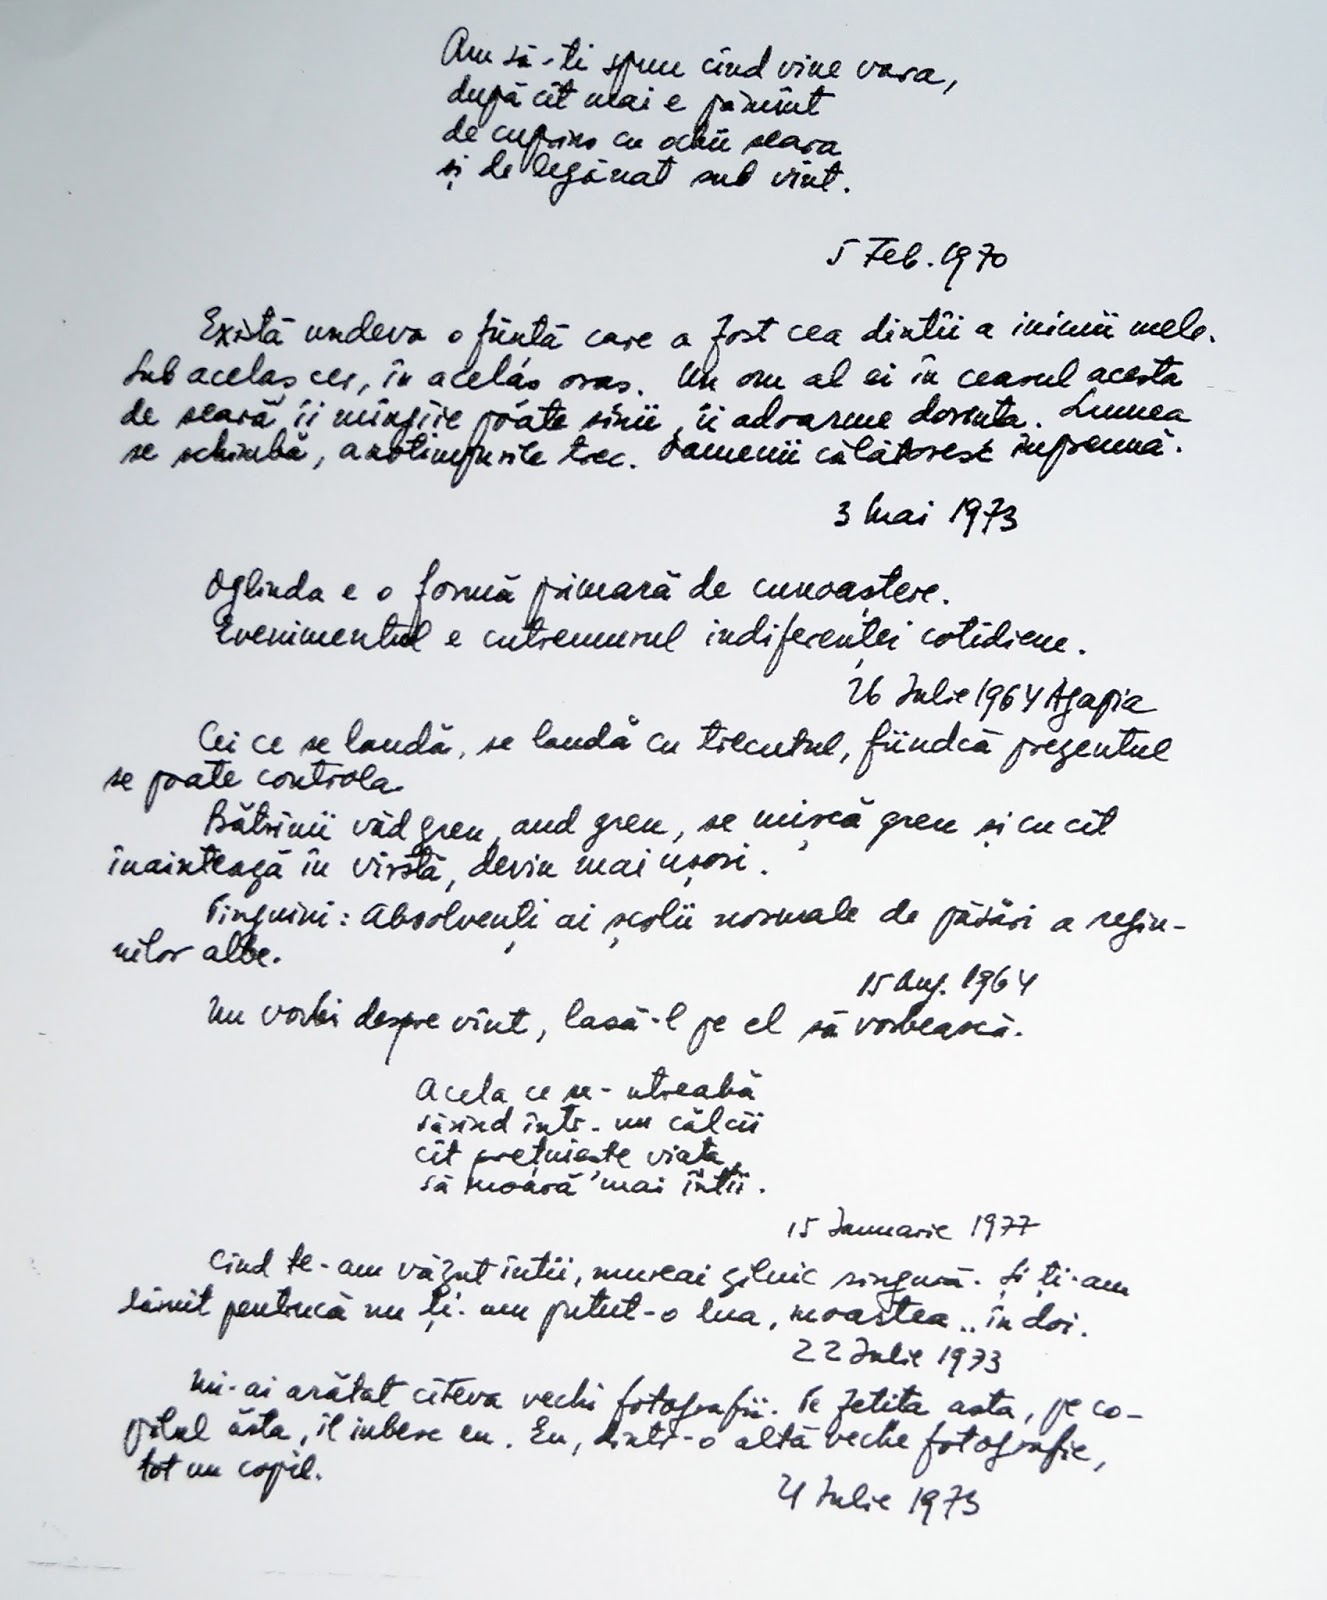 Am să-ti spun cînd vine vara,
după cît mai e pămînt
de cuprins cu ochii seara
și de legănat sub vînt.
5 Feb. 1970
Există undeva o fiintă care a fost cea dintîi a inimii mele.
Sub acelaș cer, în acelas oras. Un om al ei în ceasul acesta
de seară îi mîngîie poate sînii, îi adoarme dorinta. Lumea
se schimbă, anotimpurile trec. Oamenii călătoresc împreună.
3 Mai 1973
Oglinda e o formă primară de cunoaștere.
Evenimentul e cutremurul indiferenței cotidiene.
26 Iulie 1964 Agapia
Cei ce se laudă, se laudă cu trecutul, fiindcă prezentul
se poate controla.
Bătrînii văd greu, aud greu, se mișcă greu și cu cît
înaintează în vîrstă, devin mai ușori.
Pinguini: Absolvenți ai școlii normale de păsări a regiu-
nilor albe.
15 Aug. 1964
Nu vorbi despre vînt, lasă-l pe el să vorbească.
Acela ce se-ntreabă
sărind într-un călcîi
cît prețuiește viata,
să moară mai întîi.
15 Ianuarie 1977
Cînd te-am văzut întîi, mureai zilnic singură. Și ți-am
lămit pentrucă nu ți-am putut-o lua, moartea.. în doi.
22 Iulie 1973
Mi-ai arătat cîteva vechi fotografii. Pe fetita asta, pe co-
pilul ăsta, îl iubesc eu. Eu, dintr-o altă veche fotografie,
tot un copil.
4 Iulie 1973